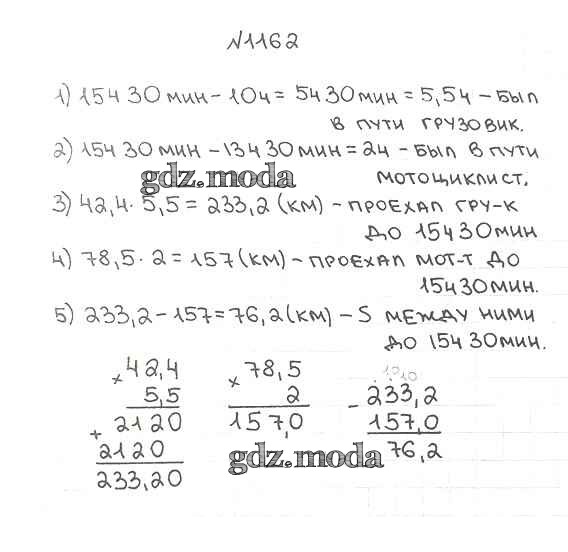 №1162
1) 15ч 30мин - 10ч = 5ч 30мин = 5,5ч - был
в пути грузовик.
2) 15ч 30мин - 13ч 30мин = 2ч - был в пути
gdz.moda
мотоциклист.
3) 42,4 · 5,5 = 233,2 (км) - проехал гру-к
до 15ч 30мин
4) 78,5 · 2 = 157 (км) - проехал мот-т до
15ч 30мин.
5) 233,2 - 157 = 76,2 (км) - S между ними
до 15ч 30мин.
× 42,4
5,5
+ 2120
2120
233,20
× 78,5
2
157,0
10 10
- 233,2
157,0
76,2
gdz.moda